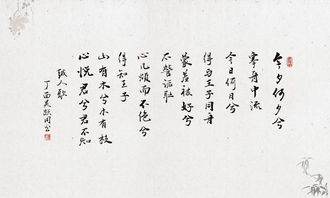 今夕何夕兮
搴舟中流
今日何日兮
得与王子同舟
蒙羞被好兮
不訾诟耻
心几烦而不绝兮
得知王子
山有木兮木有枝
心悦君兮君不知
越人歌
丁酉